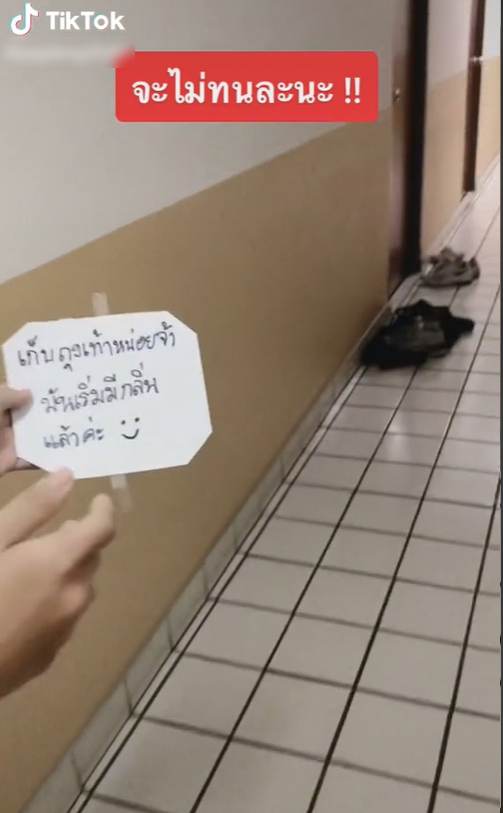 TikTok
จะไม่ทนละนะ !!
เก็บถุงเท้าหน่อยจ้า
มันเริ่มมีกลิ่น
แล้วค่ะ